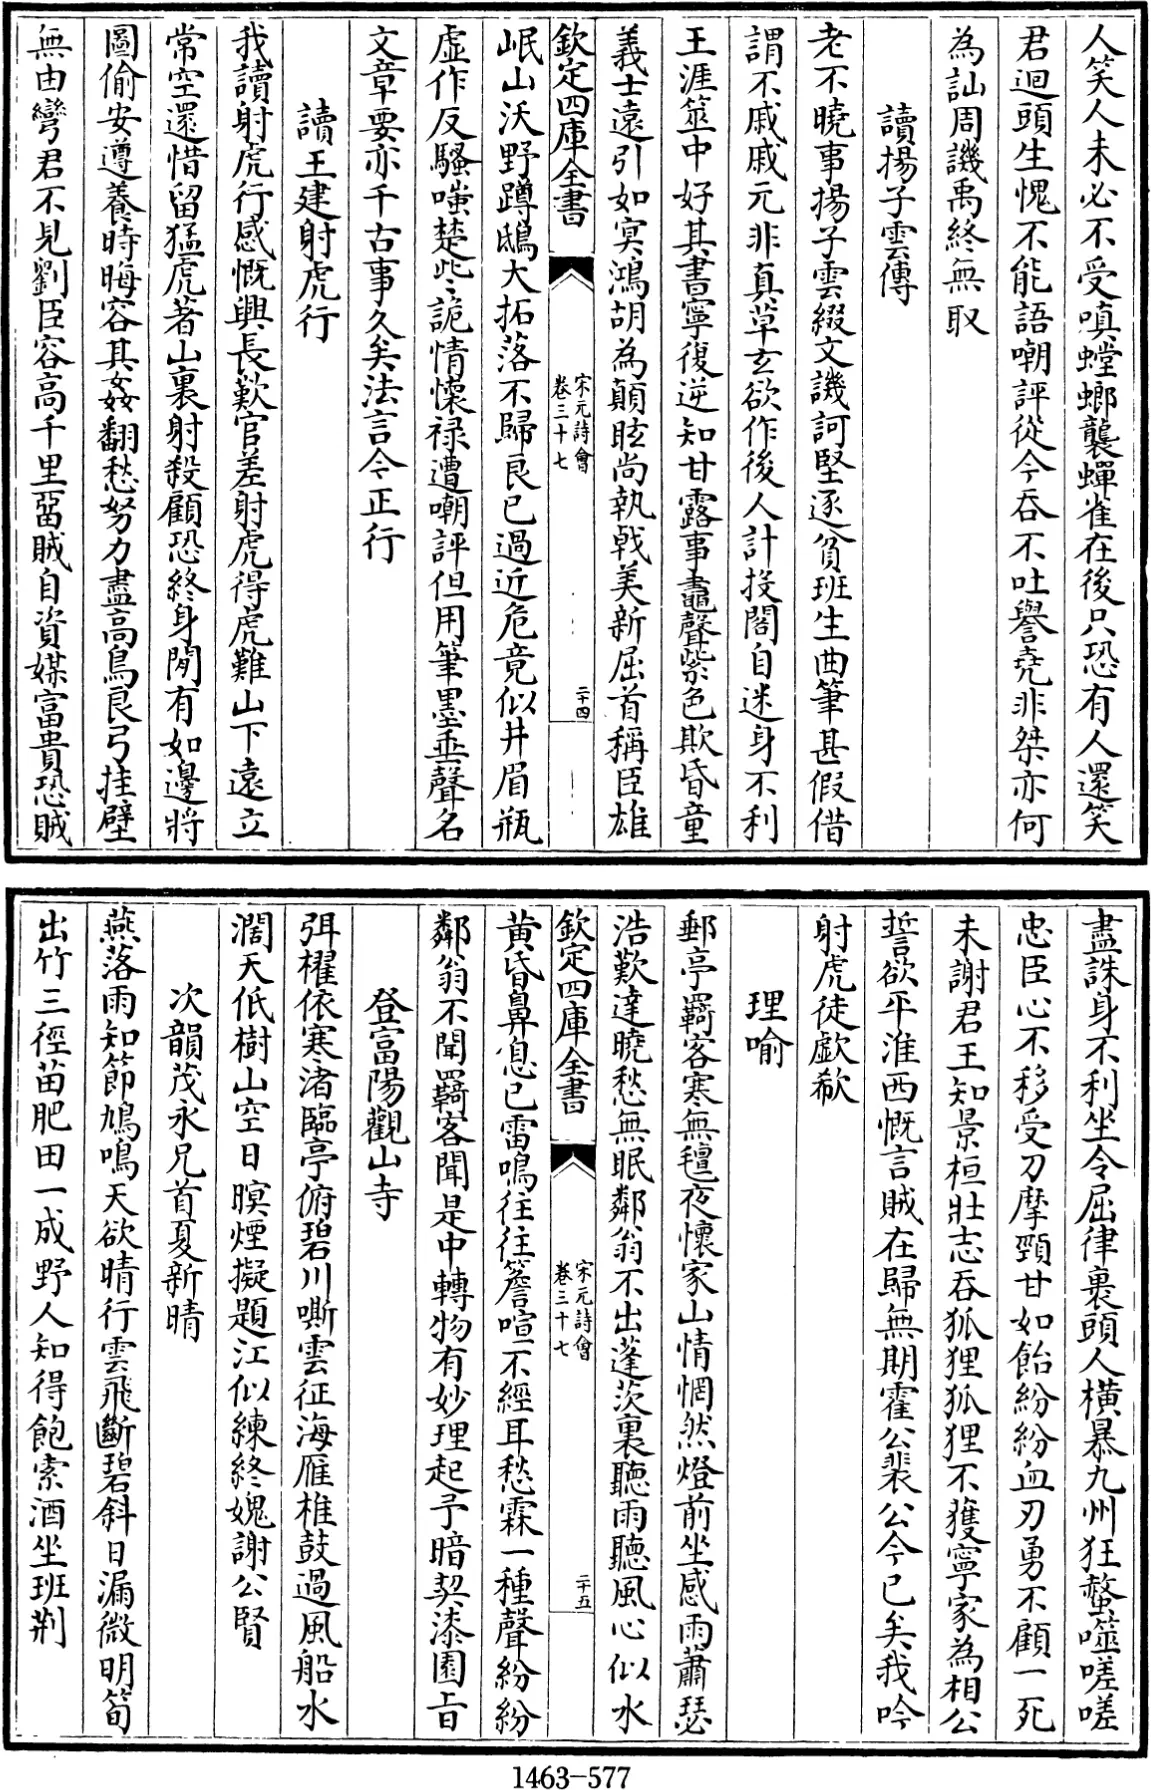 人笑人未必不受嗔螳螂襲蟬雀在後只恐有人還笑
君迴頭生愧不能語嘲評從今吞不吐譽堯非桀亦何
為訕周譏禹終無取
讀揚子雲傳
老不曉事揚子雲綴文譏訶堅逐貧班生曲筆甚假借
謂不戚戚元非真草玄欲作後人計投閣自迷身不利
王涯筮中好其書寧復逆知甘露事鼃聲紫色欺昏童
義士遠引如冥鴻胡為顛眩尚執戟美新屈首稱臣雄
欽定四庫全書
宋元詩會
卷三十七
二十四
岷山沃野蹲鴟大拓落不歸良已過近危竟似井眉瓶
虛作反騷嗤楚些詭情懷祿遭嘲評但用筆墨垂聲名
文章要亦千古事久矣法言令正行
讀王建射虎行
我讀射虎行感慨興長歎官差射虎得虎難山下遠立
常空還惜留猛虎著山裏射殺顧恐終身閒有如邊將
圖偷安遵養時晦容其姦翻愁努力盡高鳥良弓挂壁
無由彎君不見劉臣容高千里畱賊自資媒富貴恐賊
盡誅身不利坐令屈律裏頭人橫暴九州狂螫噬嗟嗟
忠臣心不移受刀摩頸甘如飴紛紛血刃勇不顧一死
未謝君王知景桓壯志吞狐狸狐狸不獲寧家為相公
誓欲平淮西慨言賊在歸無期霍公裴公今已矣我吟
射虎徒歔欷
理喻
郵亭羇客寒無氊夜懷家山情惘然燈前坐感雨蕭瑟
浩歎達曉愁無眠鄰翁不出蓬茨裏聽雨聽風心似水
欽定四庫全書
宋元詩會
卷三十七
二十五
黃昏鼻息已雷鳴往往簷喧不經耳愁霖一種聲紛紛
鄰翁不聞羇客聞是中轉物有妙理起予暗契漆園旨
登富陽觀山寺
弭櫂依寒渚臨亭俯碧川嘶雲征海雁椎鼓過風船水
濶天低樹山空日暝煙擬題江似練終媿謝公賢
次韻茂永兄首夏新晴
燕落雨知節鳩鳴天欲晴行雲飛斷碧斜日漏微明筍
出竹三徑苗肥田一成野人知得飽索酒坐班荊
1463-577